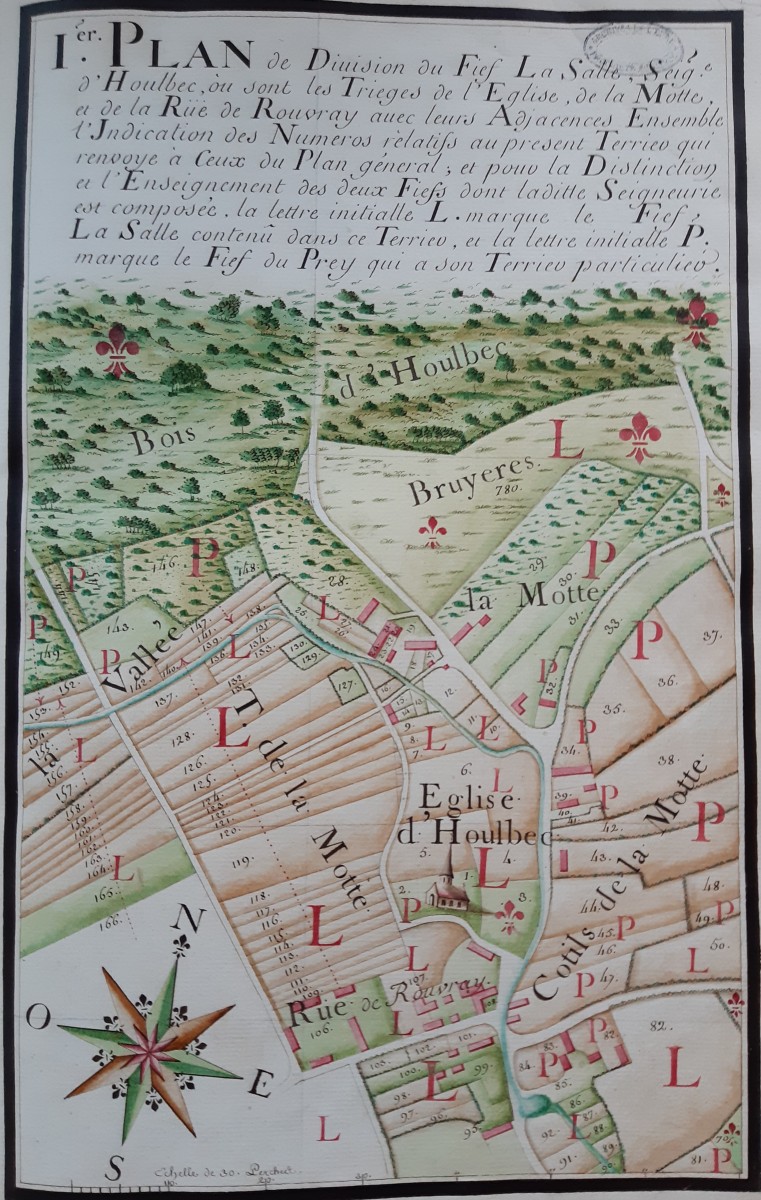 1.er PLAN de Diuision du Fief La Salle, Seig.e
d'Houlbec, où sont les Trieges de l'Eglise, de la Motte,
et de la Rüe de Rouvray auec leurs Adjacences Ensemble
l'Jndication des Numeros rèlatifs au present Terrier qui
renuoye à Ceux du Plan géneral; et pour la Distinction
et l'Enseignement des deux Fiefs dont laditte Seigneurie
est composeé. la lettre initialle L. marque le Fief
La Salle contenû dans ce Terrier, et la lettre initialle P.
marque le Fief du Prey qui a son Terrier particulier.
Bois
d'Houlbec
L
Bruyeres.
780.
P
146.
148.
28.
29.
30.
31.
P
la Motte
33.
P
37.
36.
35.
P
143.
P
149.
P
la Valleé
147.
141.
139.
138.
135.
134.
133.
136.
L
L
26.
130.
129.
127.
12.
P
32.
152.
153.
142.
140.
137.
132.
T. de la Motte
L
128.
126.
125.
124.
123.
122.
121.
120.
119.
118.
117.
116.
115.
114.
113.
112.
111.
110.
109.
L
154.
155.
156.
157.
158.
159.
160.
161.
162.
163.
164.
165.
166.
L
L
9.
8.
7.
L
11.
10.
L
6.
L
Eglise
d'Houlbec
5.
4.
L
1.
2.
3.
P
P
34.
38.
39.
40.
41.
42.
P
P
43.
Cotils de la Motte
44.
45.
46.
47.
P
P
48.
49.
P
50.
L
L
107.
Rüe de Rouvray
106.
L
N
O
E
S
103.
102.
101.
100.
99.
98.
97.
96.
95.
L
L
82.
L
P
P
83.
84.
85.
86.
87.
88.
89.
90.
91.
92.
L
81.
P
Echelle de 30. Perches